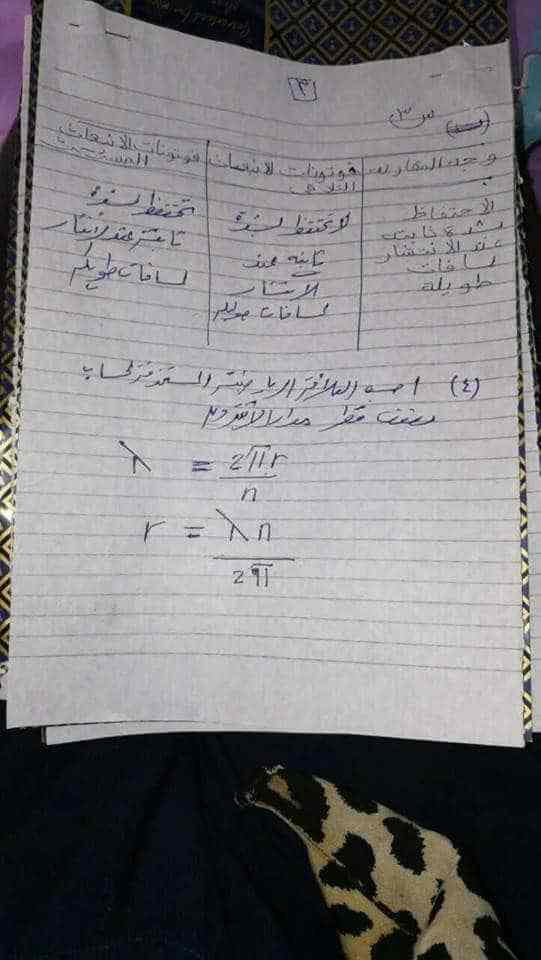 ٣
س٣ (ب)
وجه المقارنة
فوتونات الانبعاث التلقائي
فوتونات الانبعاث المستحث
الاحتفاظ
بشدة ثابتة
عند الانتشار
لمسافات
طويلة
لا تحتفظ بشدة
ثابته عند
الانتشار
لمسافات طويله
تحتفظ بشدة
ثابته عند انتشار
لمسافات طويله
(٤) العلاقة الرياضية المستخدمة لحساب
نصف قطر مدار الالكترون
λ = 2πr
n
r = λn
2π